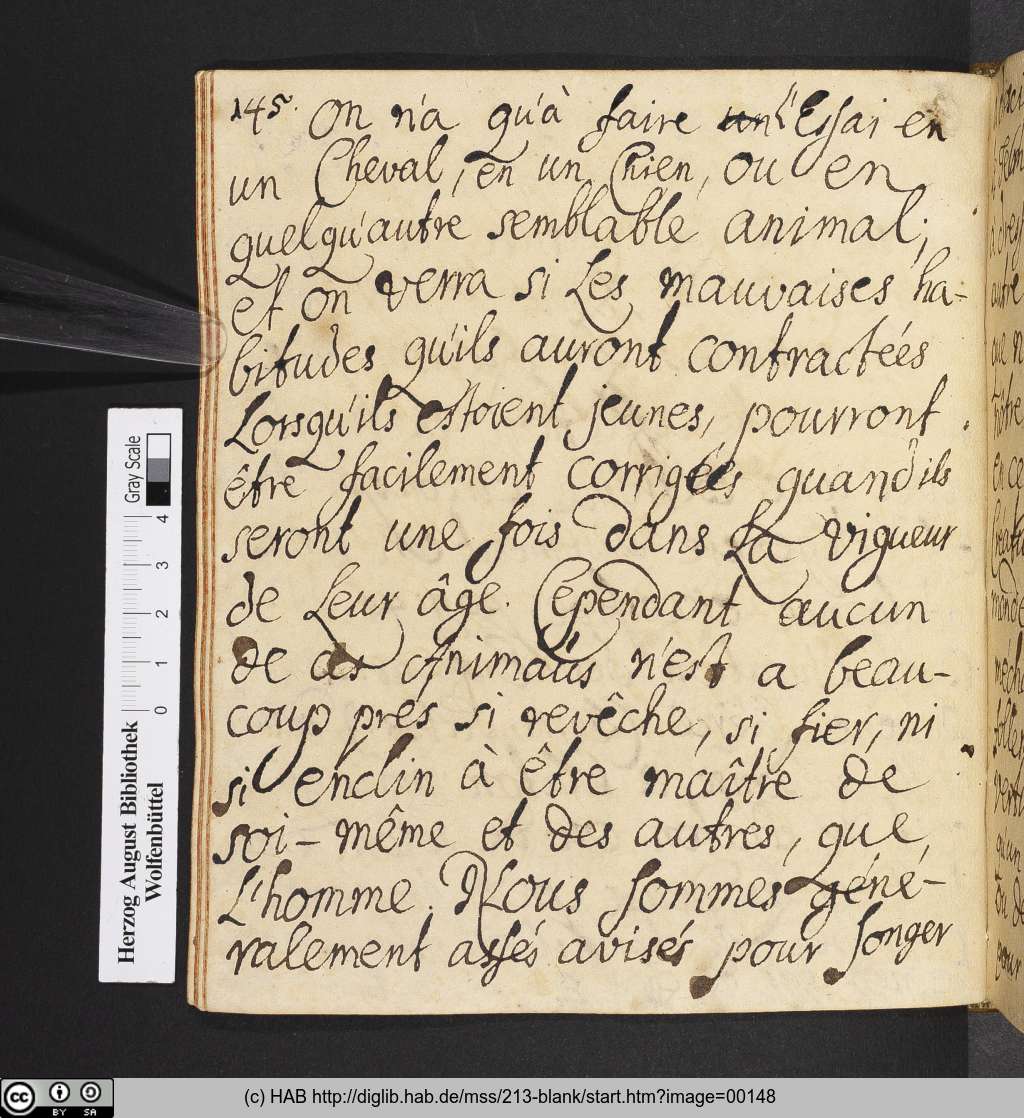 145. On n'a qu'à faire un l'Essai en
un Cheval, en un Chien, ou en
quelqu'autre semblable animal;
et on verra si Les mauvaises ha-
bitudes qu'ils auront contractées
Lorsqu'ils estoient jeunes, pourront
être facilement corrigées quand ils
seront une fois dans La vigueur
de Leur âge. Cependant aucun
de ces Animaus n'est a beau-
coup pres si revêche, si fier, ni
si enclin à être maître de
soi-même et des autres, que
L'homme. Nous sommes géné-
ralement assés avisés pour songer
Herzog August Bibliothek
Wolfenbüttel
Gray Scale
0 1 2 3 4
cc BY SA
(c) HAB http://diglib.hab.de/mss/213-blank/start.htm?image=00148